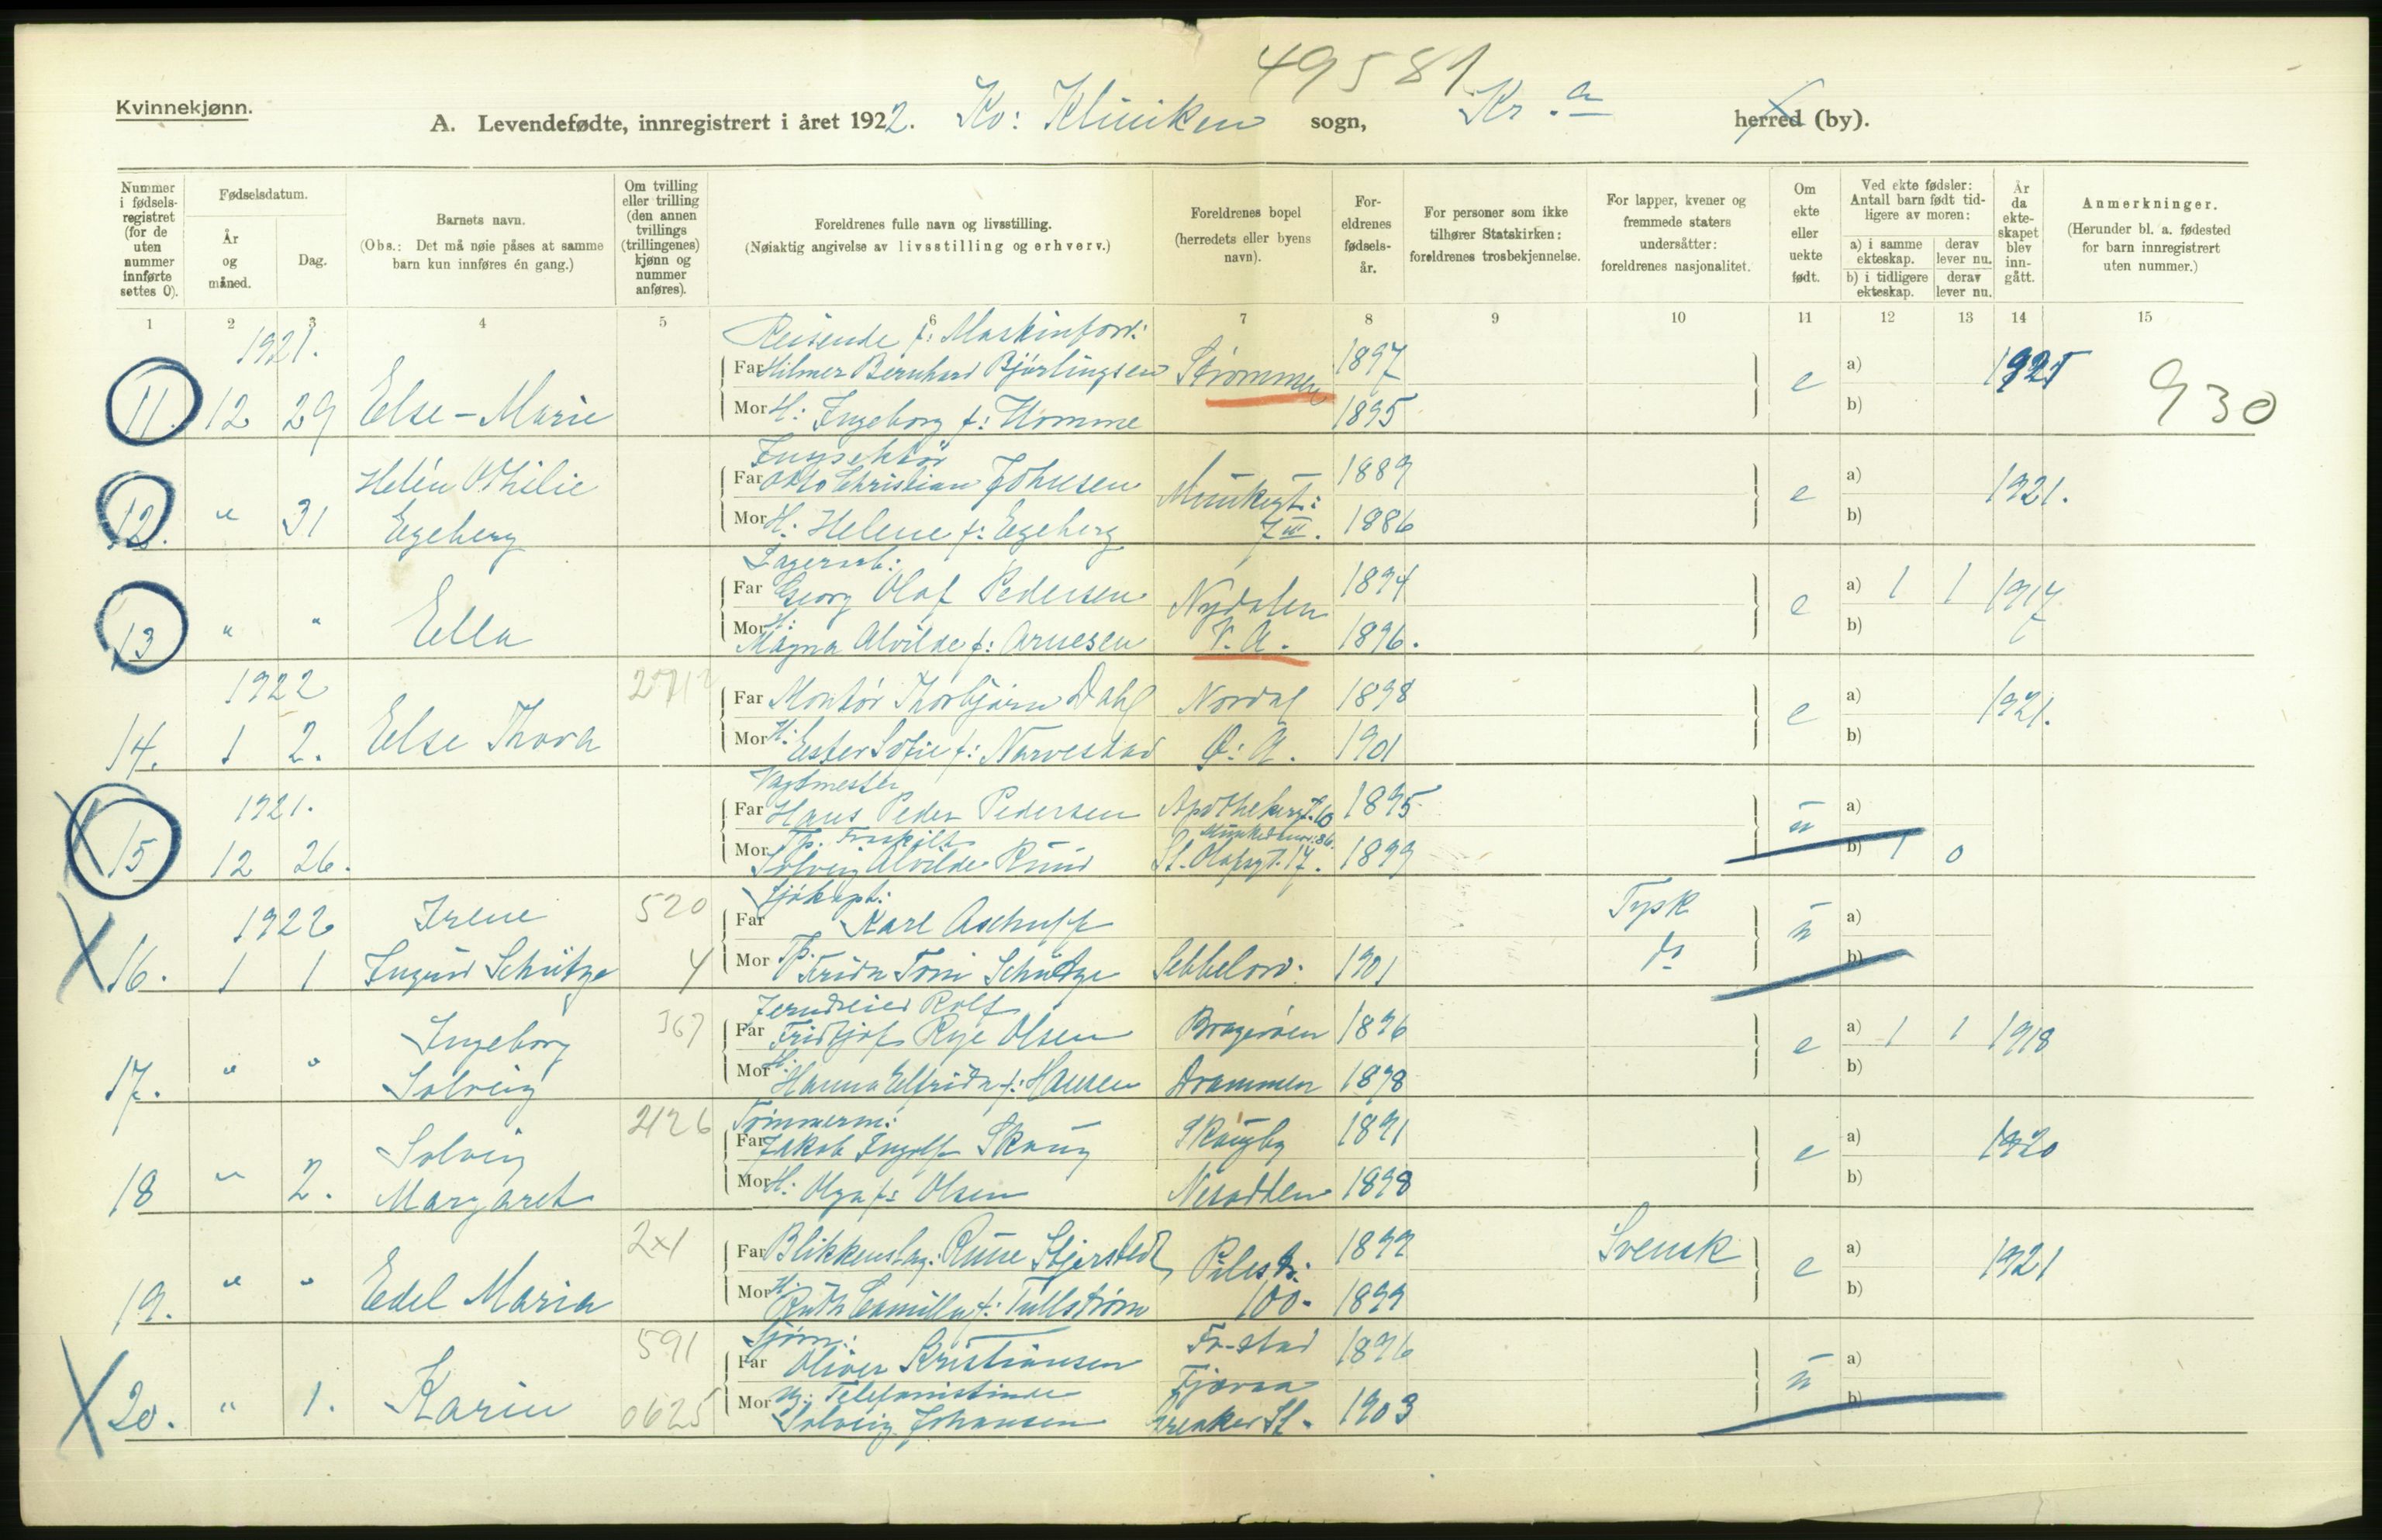 49581
Kvinnekjønn.
A. Levendefødte, innregistrert i året 1922. Kv: Kliniken sogn, Kr.a herred (by).
Nummer i fødsels-registret (for de uten nummer innførte settes 0).
Fødselsdatum.
År og måned.
Dag.
Barnets navn.
(Obs.: Det må nøie påses at samme barn kun innføres én gang.)
Om tvilling eller trilling (den annen tvillings (trillingenes) kjønn og nummer anføres).
Foreldrenes fulle navn og livsstilling.
(Nøiaktig angivelse av livsstilling og erhverv.)
Foreldrenes bopel (herredets eller byens navn).
For-eldrenes fødsels-år.
For personer som ikke tilhører Statskirken: foreldrenes trosbekjennelse.
For lapper, kvener og fremmede staters undersåtter: foreldrenes nasjonalitet.
Om ekte eller uekte født.
Ved ekte fødsler: Antall barn født tid-ligere av moren:
a) i samme ekteskap.
derav lever nu.
b) i tidligere ekteskap.
derav lever nu.
År da ekte-skapet blev inn-gått.
Anmerkninger.
(Herunder bl. a. fødested for barn innregistrert uten nummer.)
1 2 3 4 5 6 7 8 9 10 11 12 13 14 15
1921. Reisende f: Maskinforr:
Far Hilmer Bernhard Bjørlingsen Strømmen 1897 e a) 1921 930
11. 12 29 Else-Marie
Mor H: Ingeborg f: Homme 1895 b)
Inspektør
Helén Othilie Far Otto Christian Johnsen Munkegt: 1889 e a) 1921.
12. " 31 Egeberg Mor H: Helene f: Egeberg 7 III. 1886 b)
Lagerarb:
Far Georg Olaf Pedersen Nydalen 1894 e a) 1 1 1917
13 " " Ella Mor H: Magna Alvilde f: Arnesen V. A. 1896. b)
1922 Far Montør Thorbjørn Dahl Nordal 1898 e a) 1921.
14. 1 2. Else Thora Mor H: Ester Sofie f: Narvestad Ø: A. 1901 b)
Vagtmester
1921. Far Hans Peder Pedersen Apothekergt. 10 1895 u a)
15 12 26. Mor Tp. Fraskilt Solveig Alvilde Ruud St. Olafsgt. 17. 1899 b) 1 0
Sjøkapt:
1922 Irene 520 Far Karl Tysk u a)
16. 1 1 Ingrid Schütze 4 Mor Tp. Frida Toni Schütze Sebbelow. 1901 do b)
Jerndreier Rolf
Ingeborg 367 Far Fridtjof Rye Olsen Bragerøen 1896 e a) 1 1 1918
17. " " Solveig Mor H: Hanna Elfrida f: Hansen Drammen 1898 b)
Tømmerm:
Solveig 2126 Far Jakob Ingolf Skaug Skaugby 1891 e a) 1920
18 " 2. Margaret Mor H: Olga f: Olsen Nesodden 1898 b)
2x1 Far Blikkenslag: Rune Stjerstedt Pilestr: 1899 Svensk e a) 1921
19. " " Edel Maria Mor H: Ruth Camilla f: Tullstrøm 100. 1899 b)
Sjøm:
591 Far Oliver Kristiansen Fr-stad 1896 u a)
20. " 1. Karin 0625 Mor Ug: Telefonistinde Solveig Johansen 1903 b)